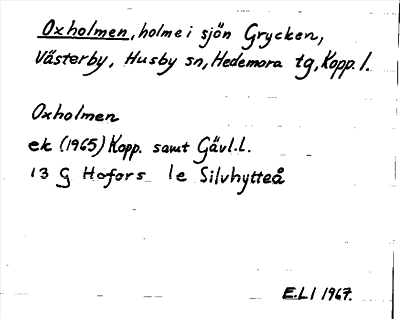 Oxholmen, holme i sjön Grycken,
Västerby, Husby sn, Hedemora tg, Kopp. l.
Oxholmen
ek (1965) Kopp. samt Gävl. l.
13 G Hofors 1e Silvhytteå
E.LI 1967.